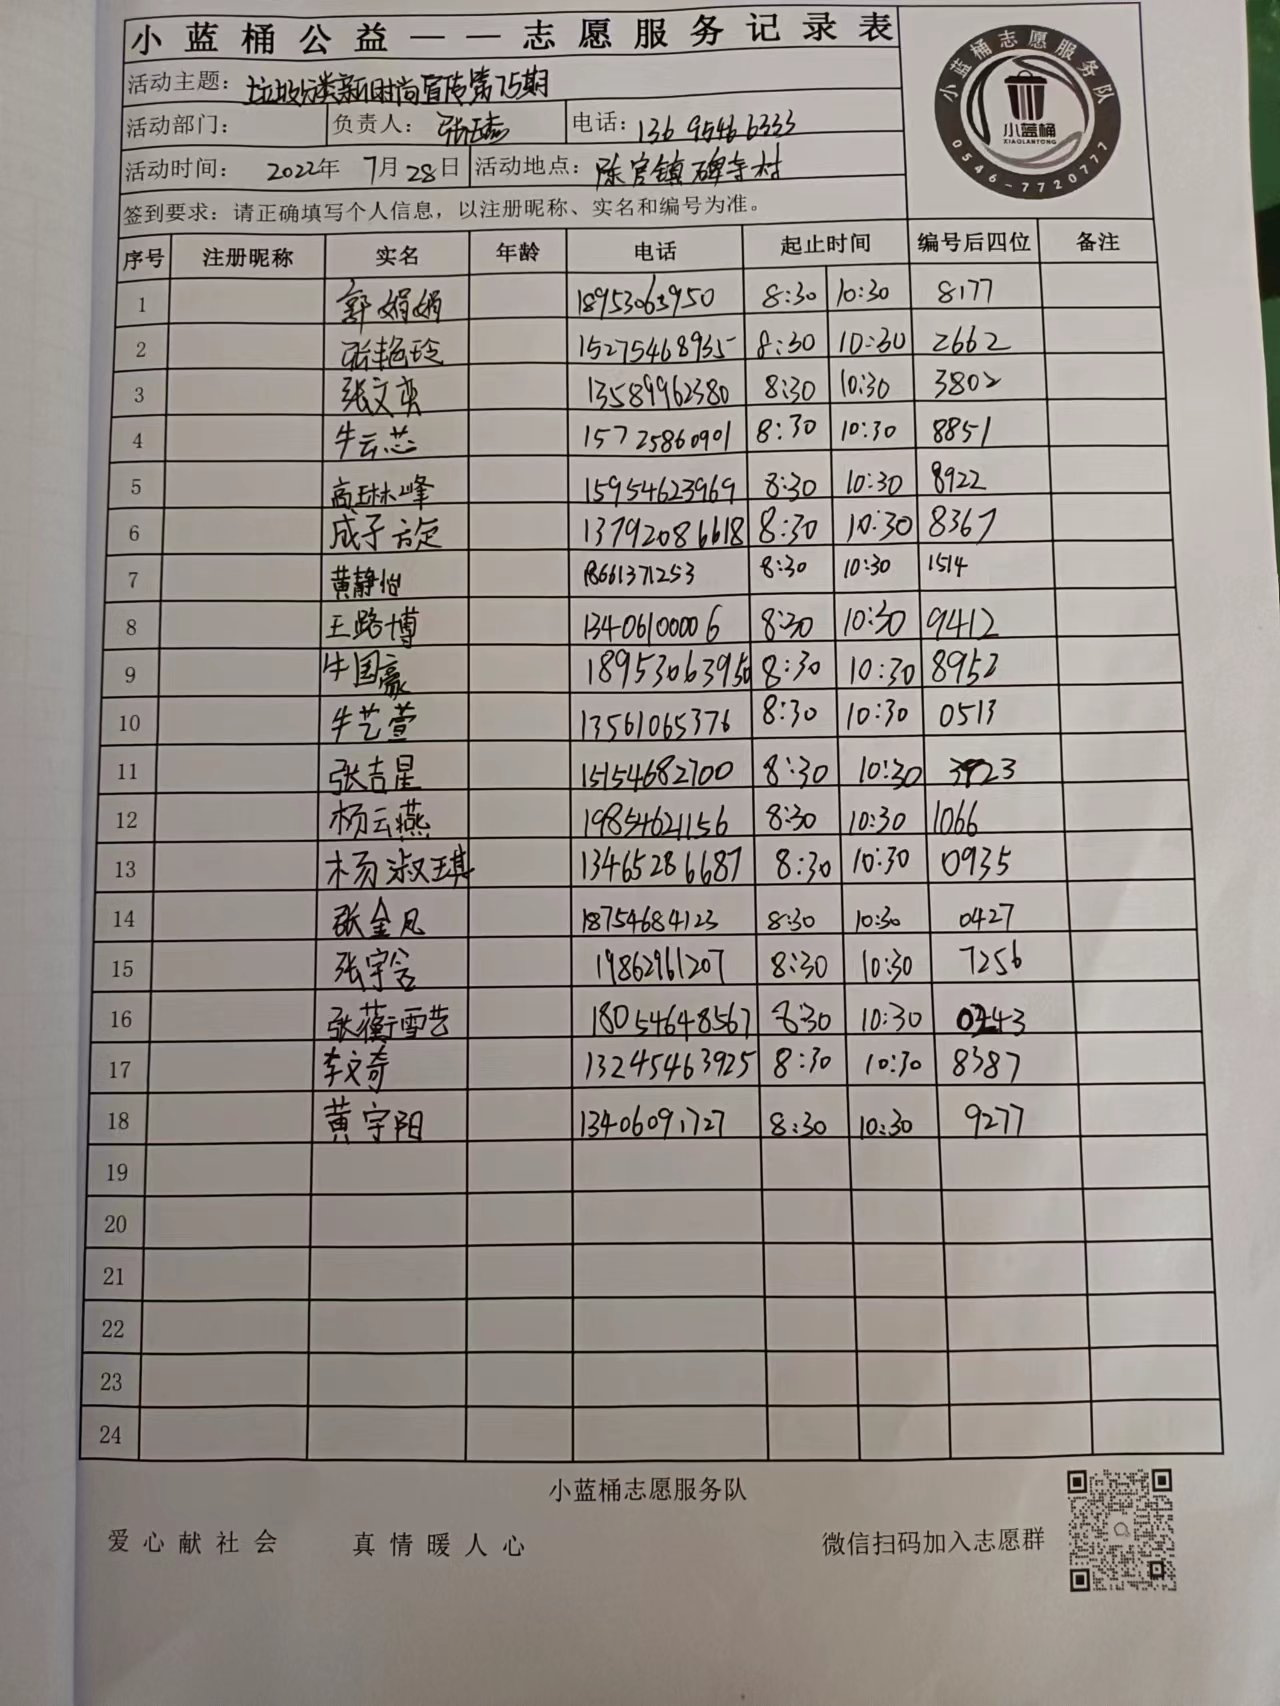 小蓝桶公益——志愿服务记录表
小蓝桶志愿服务队
小蓝桶
XIAOLANTONG
0546-7720777
活动主题： 垃圾分类新旧时尚宣传第75期
活动部门： 负责人： 电话：136 9546 6333
活动时间： 2022年 7月28日 活动地点：陈官镇碑寺村
签到要求：请正确填写个人信息，以注册昵称、实名和编号为准。
序号 注册昵称 实名 年龄 电话 起止时间 编号后四位 备注
1 郭娟娟 18953063950 8:30 10:30 8177
2 张艳玲 15275468935 8:30 10:30 2662
3 张文奕 13589962380 8:30 10:30 3802
4 牛云芯 15725860901 8:30 10:30 8851
5 高琳峰 15954623969 8:30 10:30 8922
6 成子 13792086618 8:30 10:30 8367
7 黄静怡 18661371253 8:30 10:30 1514
8 王路博 13406100006 8:30 10:30 9412
9 牛国豪 18953063950 8:30 10:30 8952
10 牛艺萱 13561065376 8:30 10:30 0513
11 张吉星 15154682700 8:30 10:30 3923
12 杨云燕 19854621156 8:30 10:30 1066
13 杨淑琪 13465286687 8:30 10:30 0935
14 张金凡 18754684123 8:30 10:30 0427
15 张宇含 19862961207 8:30 10:30 7256
16 张蘅雪艺 18054648567 8:30 10:30
17 李文奇 13245463925 8:30 10:30 8387
18 黄宇阳 13406091727 8:30 10:30 9277
19
20
21
22
23
24
小蓝桶志愿服务队
爱心献社会 真情暖人心 微信扫码加入志愿群